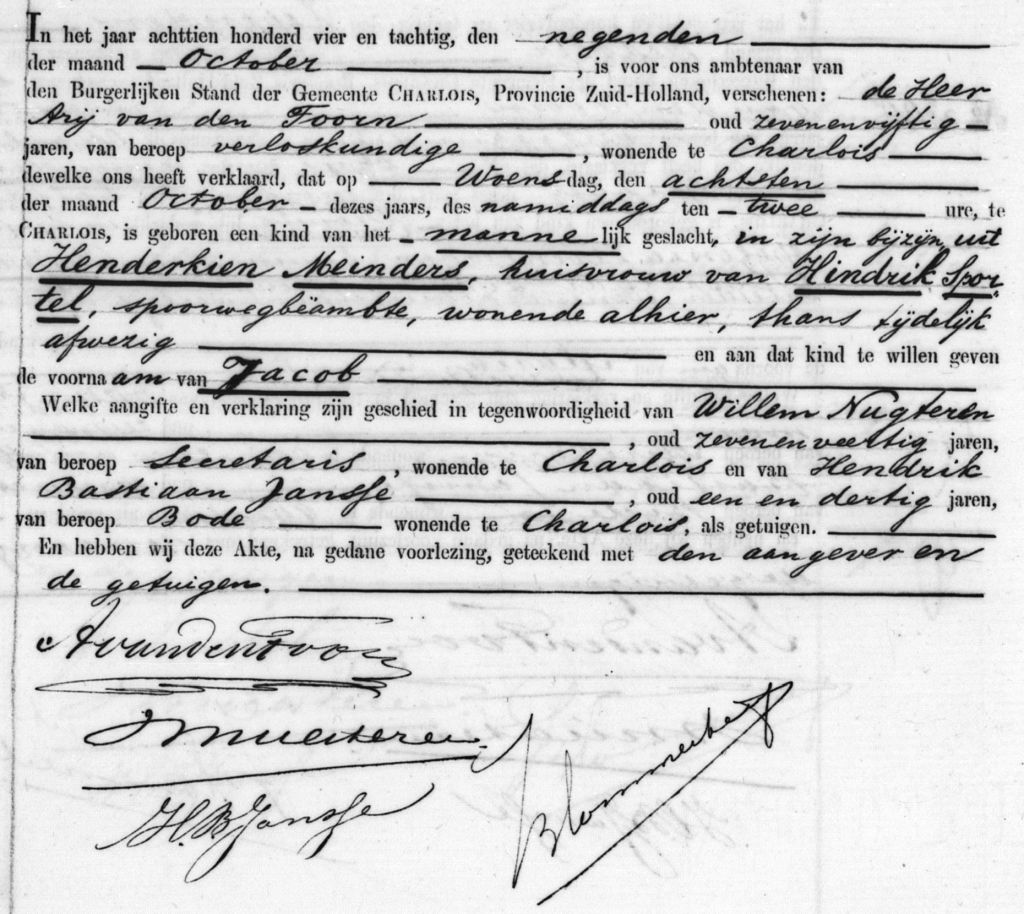 In het jaar achttien honderd vier en tachtig, den negenden
der maand October, is voor ons ambtenaar van
den Burgerlijken Stand der Gemeente CHARLOIS, Provincie Zuid-Holland, verschenen: de Heer
Arij van den Toorn oud zevenenvijftig
jaren, van beroep verloskundige, wonende te Charlois
dewelke ons heeft verklaard, dat op Woensdag, den achtsten
der maand October dezes jaars, des namiddags ten twee ure, te
CHARLOIS, is geboren een kind van het mannelijk geslacht, in zijn bijzijn, uit
Henderkien Meinders, huisvrouw van Hindrik Spor-
tel, spoorwegbëambte, wonende alhier, thans tijdelijk
afwezig en aan dat kind te willen geven
de voornaam van Jacob
Welke aangifte en verklaring zijn geschied in tegenwoordigheid van Willem Nugteren
, oud zevenenveertig jaren,
van beroep Secretaris, wonende te Charlois en van Hendrik
Bastiaan Janssé, oud een en dertig jaren,
van beroep Bode wonende te Charlois, als getuigen.
En hebben wij deze Akte, na gedane voorlezing, geteekend met den aangever en
de getuigen.
A van den Toorn
H. B. Janssé